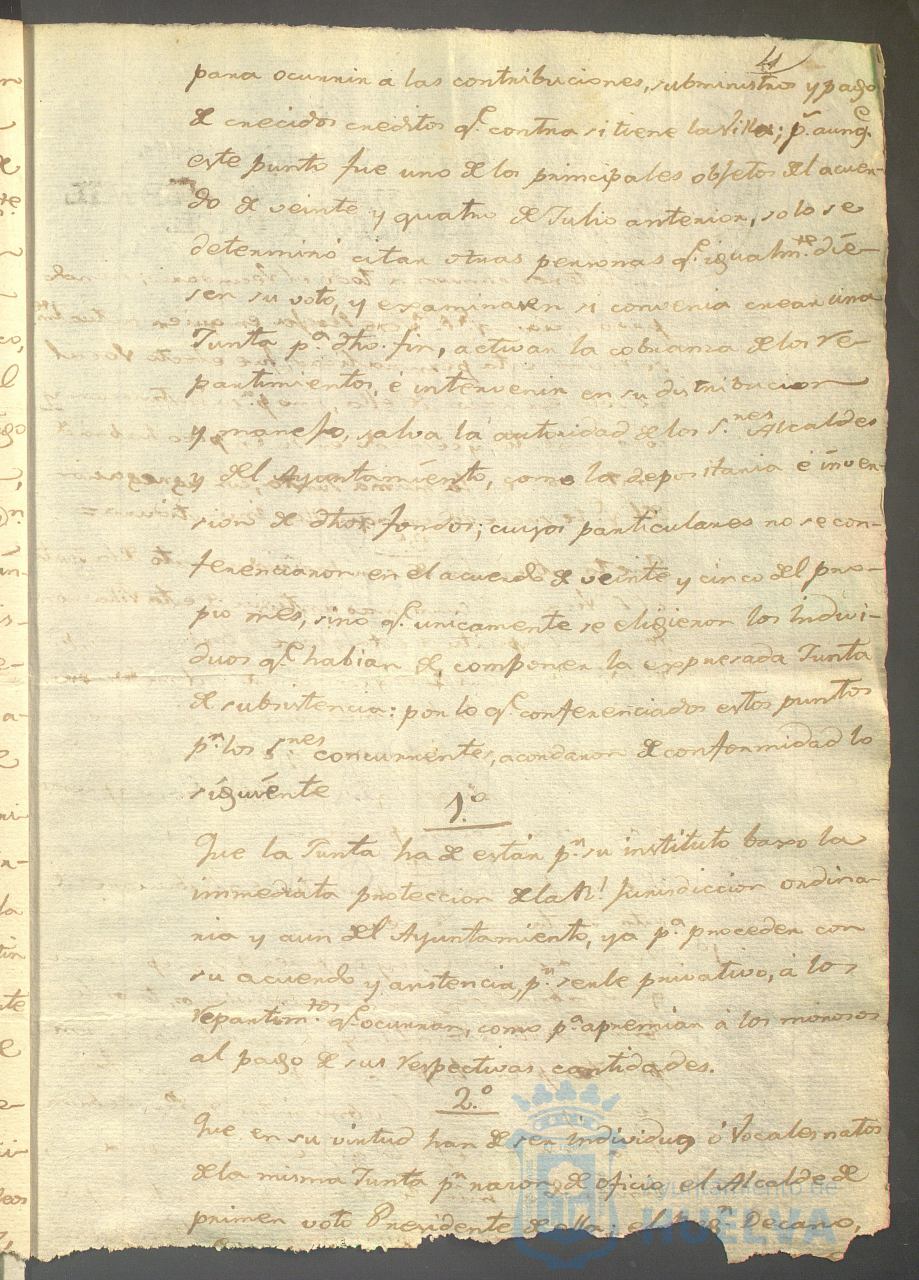 4
para ocurrir a las contribuciones, subministros y pago
de crecidos creditos q.e contra si tiene la Villa; p.s aunq.
este punto fue uno de los principales objetos del acuer-
do de veinte y quatro de Julio anterior, solo se
determinó citar otras personas q.e igualm.te dié-
sen su voto, y examinasen si convenia crear una
Junta p.a dho. fin, activar la cobranza de los re-
partimientos, é intervenir en su distribucion
y manejo, salva la autoridad de los S.res Alcaldes
y del Ayuntamiento, como la depositaria é inver-
sion de dhos. fondos; cuyos particulares no se con-
ferenciaron en el acuerdo de veinte y cinco del pro-
pio mes, sino q.e unicamente se eligieron los indivi-
duos q.e habian de componer la expresada Junta
de subsistencia: por lo q.e conferenciados estos puntos
p.r los S.res concurrentes, acordaron de conformidad lo
siguiente
1.o
Que la Junta ha de estár p.r su instituto baxo la
immediata proteccion de la R.l Jurisdiccion ordina-
ria y aun del Ayuntamiento, ya p.a proceder con
su acuerdo y asistencia, p.r serle privativo, á los
repartim.tos q.e ocurran, como p.a apremiar á los morosos
al pago de sus respectivas cantidades.
2.o
Que en su virtud han de ser individuos ó Vocales natos
de la misma Junta p.r razon de oficio el Alcalde de
primer voto Presidente de ella; el Decano,
Ayuntamiento de
HUELVA